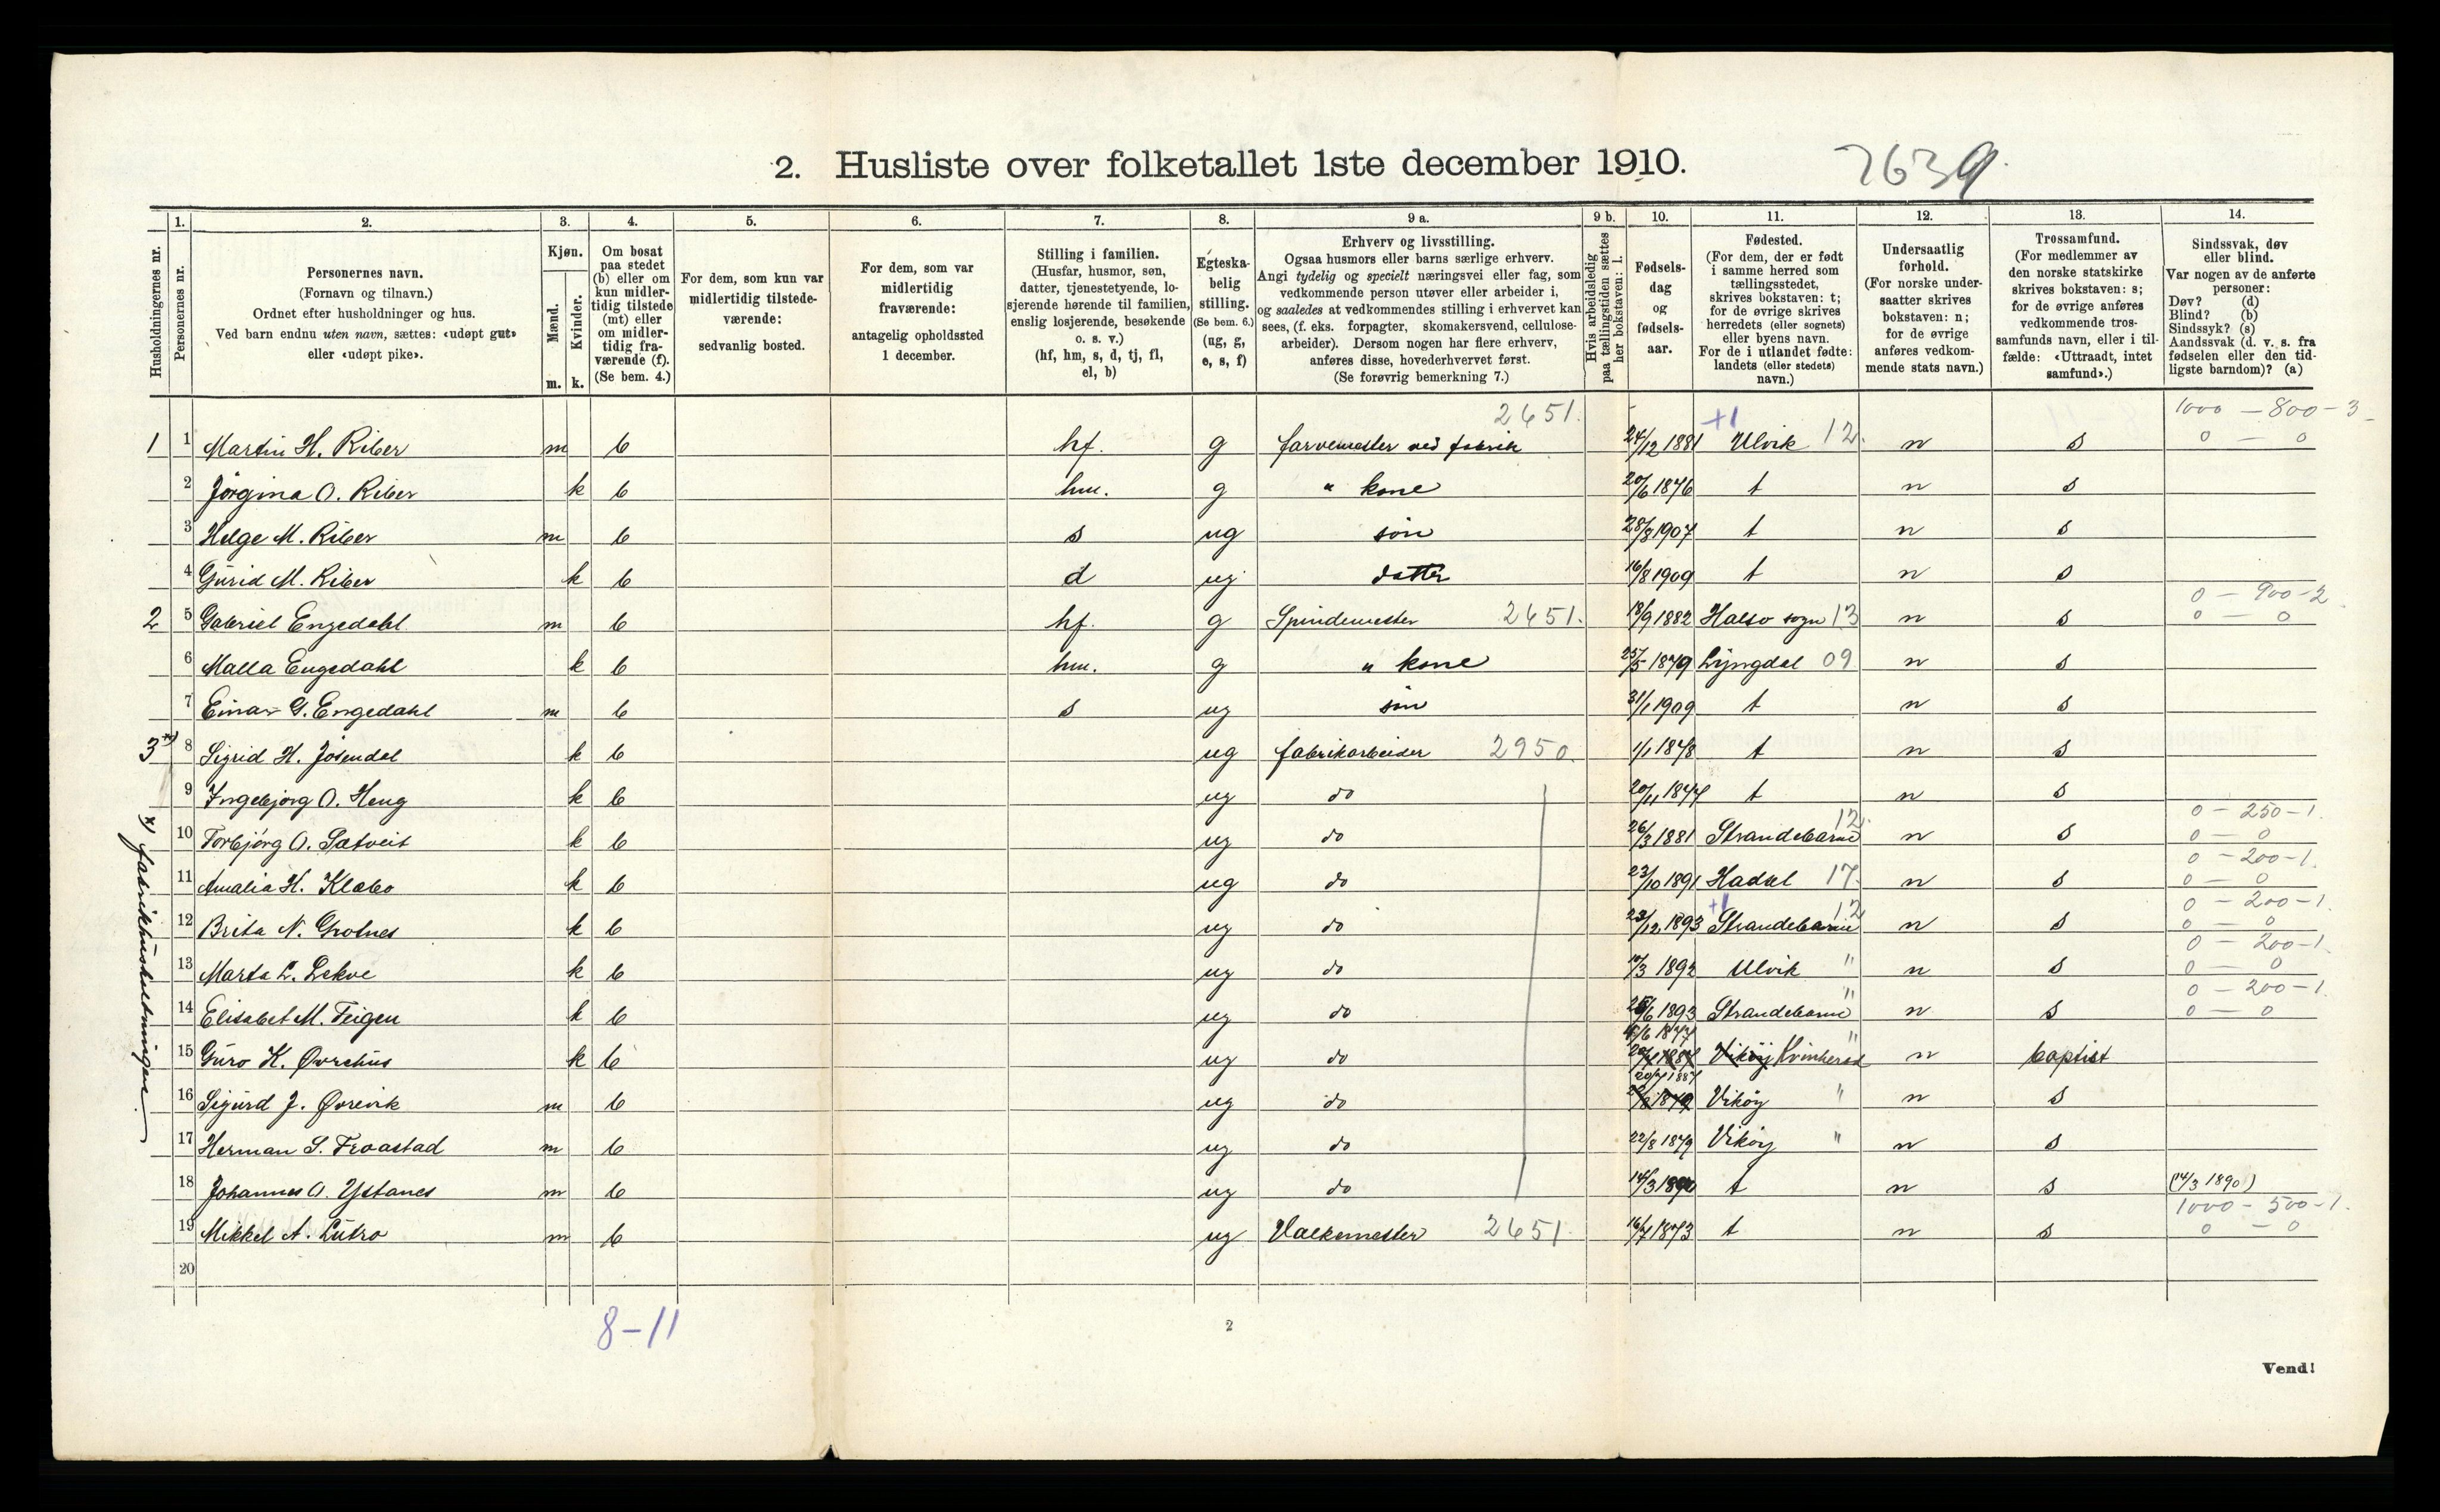 2. Husliste over folketallet 1ste december 1910. 7639
Husholdningernes nr.
1. Personernes nr.
2. Personernes navn. (Fornavn og tilnavn.) Ordnet efter husholdninger og hus. Ved barn endnu uten navn, sættes: «udøpt gut» eller «udøpt pike».
3. Kjøn. Mænd. m. Kvinder. k.
4. Om bosat paa stedet (b) eller om kun midlertidig tilstede (mt) eller om midlertidig fraværende (f). (Se bem. 4.)
5. For dem, som kun var midlertidig tilstedeværende: sedvanlig bosted.
6. For dem, som var midlertidig fraværende: antagelig opholdssted 1 december.
7. Stilling i familien. (Husfar, husmor, søn, datter, tjenestetyende, losjerende hørende til familien, enslig losjerende, besøkende o. s. v.) (hf, hm, s, d, tj, fl, el, b)
8. Egteskabelig stilling. (Se bem. 6.) (ug, g, e, s, f)
9 a. Erhverv og livsstilling. Ogsaa husmors eller barns særlige erhverv. Angi tydelig og specielt næringsvei eller fag, som vedkommende person utøver eller arbeider i, og saaledes at vedkommendes stilling i erhvervet kan sees, (f. eks. forpagter, skomakersvend, cellulosearbeider). Dersom nogen har flere erhverv, anføres disse, hovederhvervet først. (Se forøvrig bemerkning 7.)
9 b. Hvis arbeidsledig paa tællingstiden sættes her bokstaven: l.
10. Fødselsdag og fødselsaar.
11. Fødested. (For dem, der er født i samme herred som tællingsstedet, skrives bokstaven: t; for de øvrige skrives herredets (eller sognets) eller byens navn. For de i utlandet fødte: landets (eller stedets) navn.)
12. Undersaatlig forhold. (For norske undersaatter skrives bokstaven: n; for de øvrige anføres vedkommende stats navn.)
13. Trossamfund. (For medlemmer av den norske statskirke skrives bokstaven: s; for de øvrige anføres vedkommende trossamfunds navn, eller i tilfælde: «Uttraadt, intet samfund».)
14. Sindssvak, døv eller blind. Var nogen av de anførte personer: Døv? (d) Blind? (b) Sindssyk? (s) Aandssvak (d. v. s. fra fødselen eller den tidligste barndom)? (a)
2651. +1 1000 - 800 - 3
1 1 Martin H. Riber m b hf. g farvemester ved fabrik 24/12 1881 Ulvik 12. n s 0 - 0
2 Jörgina O. Riber k b hm. g " kone 20/6 1876 t n s
3 Helge M. Riber m b s ug sön 28/8 1907 t n s
4 Gurid M. Riber k b d ug datter 16/8 1909 t n s
0 - 900 - 2
2 5 Gabriel Engedahl m b hf. g Spindemester 2651. 18/9 1882 Halso sogn 13 n s 0 - 0
6 Malla Engedahl k b hm. g " kone 25/5 1879 Lyngdal 09 n s
7 Einar G. Engedahl m b s ug sön 31/1 1909 t n s
3 x) 8 Sigrid H. Jösendal k b ug fabrikarbeider 2950. 1/1 1878 t n s
9 Ingebjørg O. Heng k b ug do 20/11 1877 t n s
12. 0 - 250 - 1.
10 Torbjörg O. Sætveit k b ug do 26/3 1881 Strandebarm n s 0 - 0
0 - 200 - 1.
11 Amalia H. Klæbo k b ug do 23/10 1891 Hadsel 17. n s 0 - 0
+1 12 0 - 200 - 1.
12 Brita N. Grotnes k b ug do 23/12 1893 Strandebarm n s 0 - 0
0 - 200 - 1.
13 Marta L. Lekve k b ug do /3 1892 Ulvik " n s 0 - 0
0 - 200 - 1.
14 Elisabet M. Teigen k b ug do /6 1893 Strandebarm " n s 0 - 0
/6 1877
15 Guro K. Øvrehus k b ug do Viköy Kvinherad " n baptist
20/7 1887
16 Sigurd J. Øvrevik m b ug do Viköy " n s
17 Herman S. Traastad m b ug do 22/8 1879 Viköy " n s
18 Johannes O. Ystanes m b ug do 14/3 1890 t n s (14/3 1890)
1000 - 500 - 1.
19 Mikkel A. Lutro m b ug Valkemester 2651. 16/7 1873 t n s 0 - 0
20
x) fabrikhusholdningen.
8-11
2
Vend!